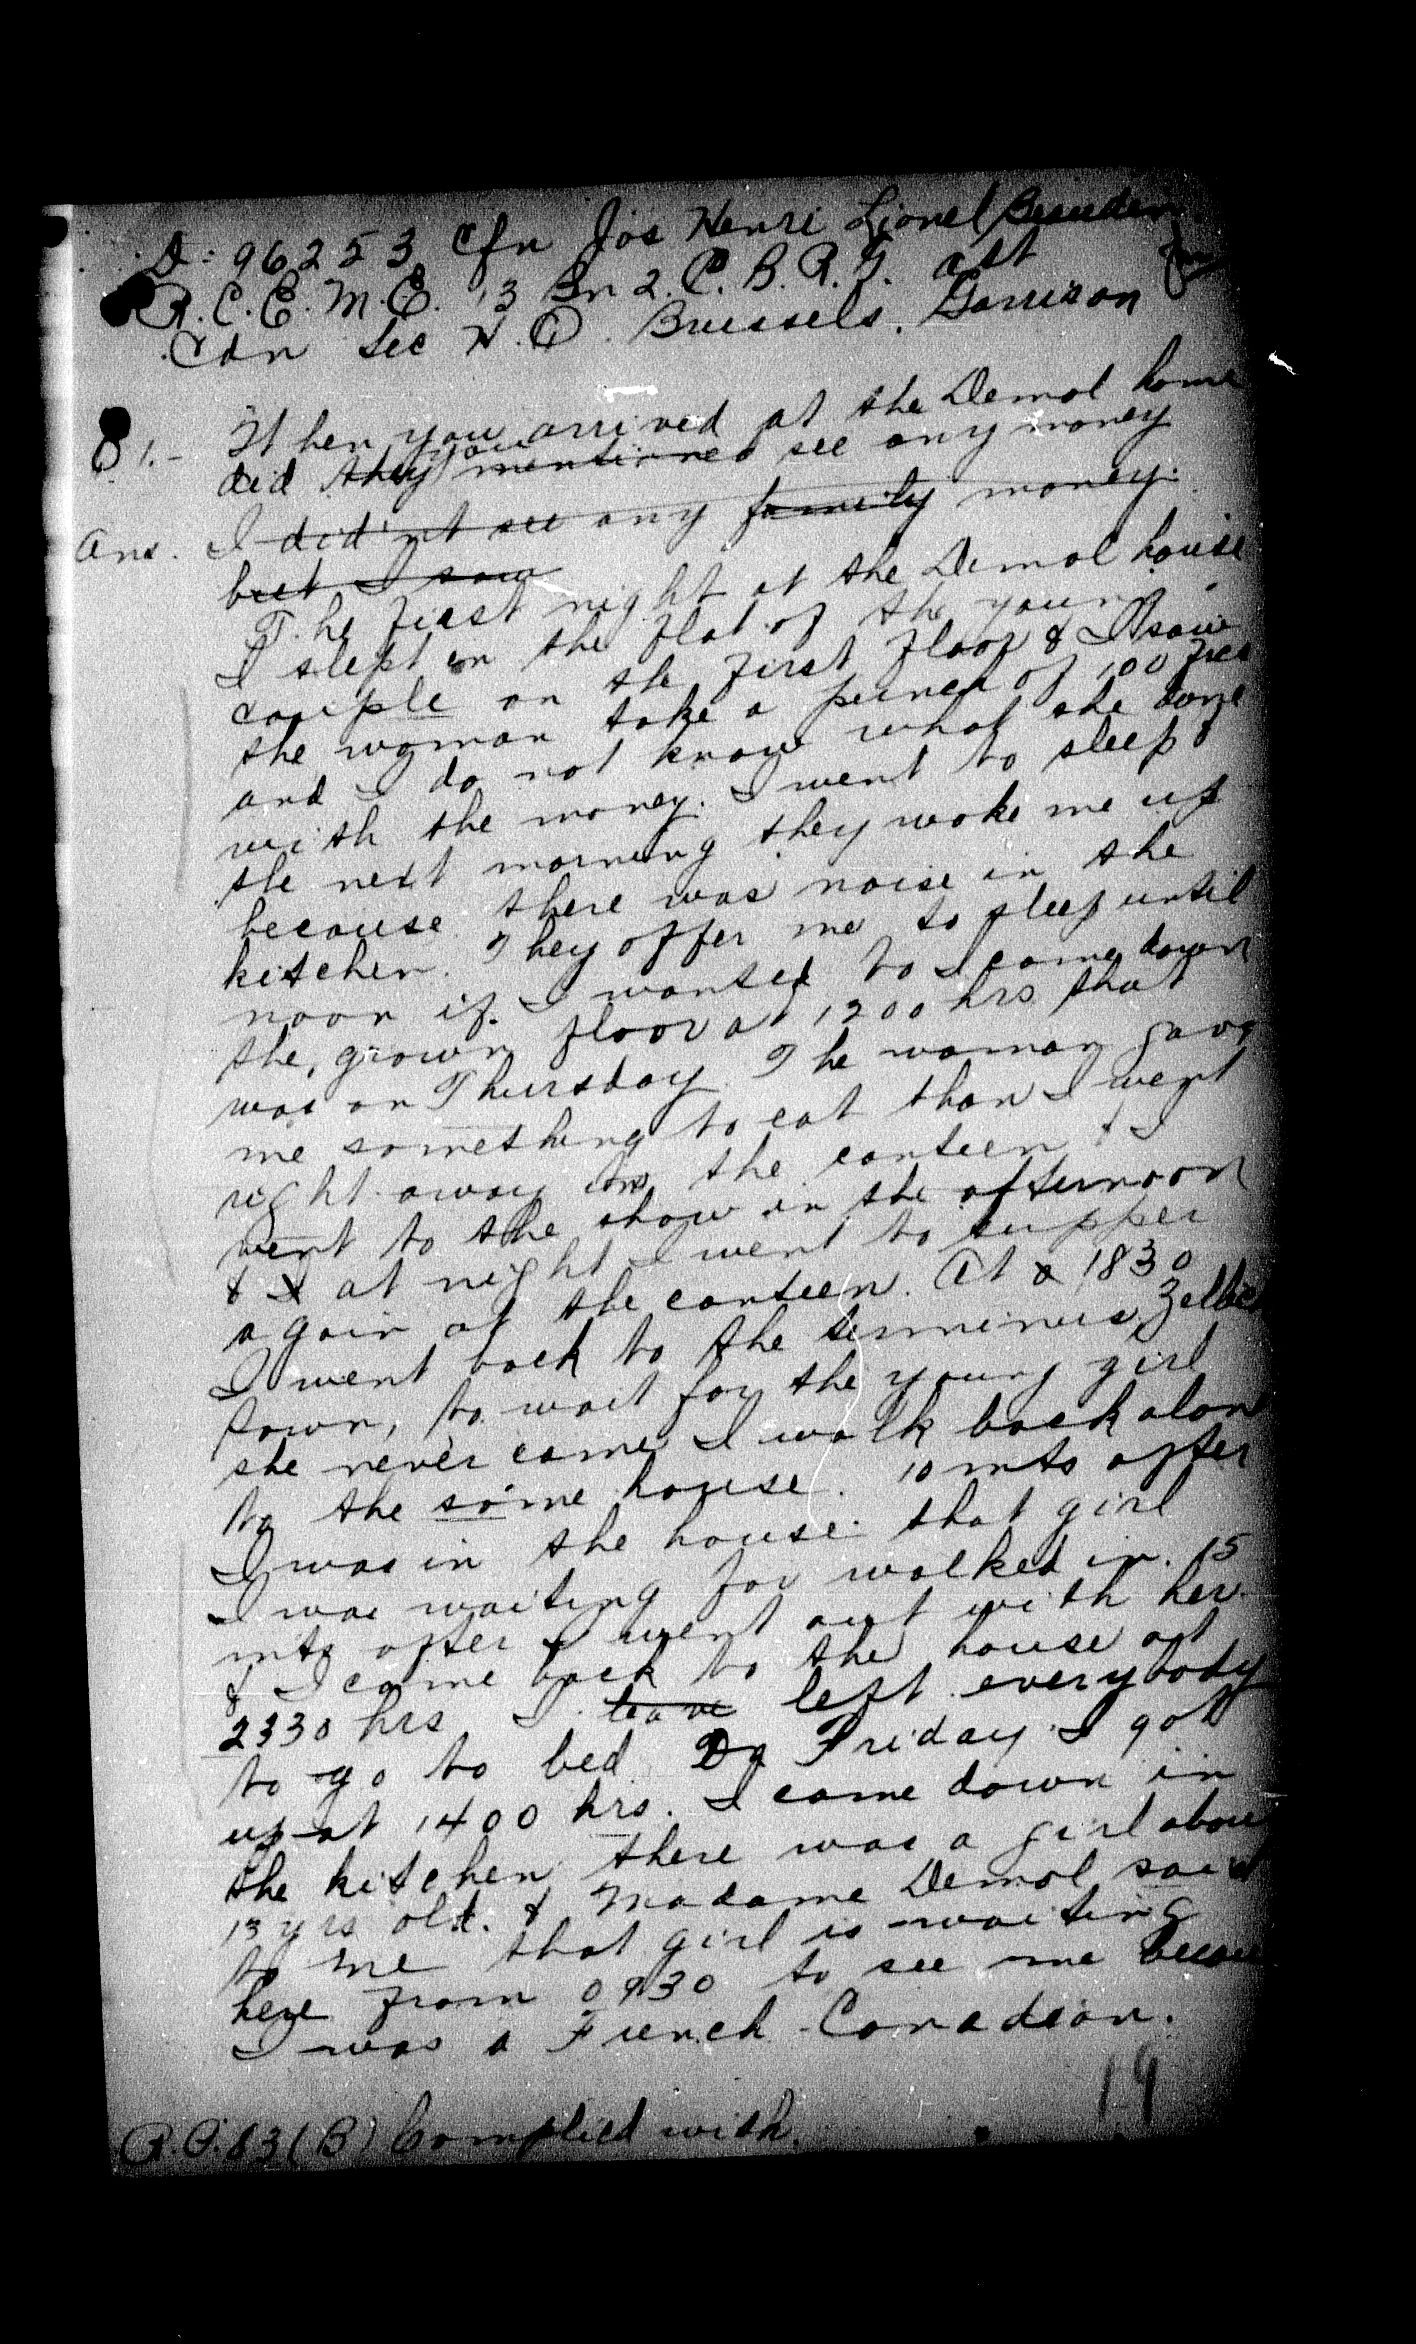 D: 96253 Cfn Jos Henri Lionel
R.C.E.M.E. 13 Bn 2. C.B.R.G. att
Cdn Sec H.Q. Brussels. Garrison
Q 1.- When you arrived at the Demol home
did they you mentioned see any money
Ans. I did'nt see any family money.
but I saw
The first night at the Demol house
I slept in the flat of the young
couple on the first floor & I saw
the woman take a punch of 100 frcs
and I do not know what she done
with the money. I went to sleep &
the next morning they woke me up
because there was noise in the
kitchen. They offer me to sleep until
noon if I wanted to I come down
the grown floor at 1200 hrs that
was on Thursday. The woman gave
me something to eat than I went
right away in the canteen & I
went to the show in the afternoon
& I at night I went to supper
again at the canteen. At a 1830
I went back to the terminus
town, to wait for the young girl
she never came I walk back alone
to the same house. 10 mts after
I was in the house that girl
I was waiting for walked in. 15
mts after I went out with her
& I came back to the house at
2330 hrs I leave left everybody
to go to bed Friday I got
up at 1400 hrs. I came down in
the kitchen there was a girl about
13 yrs old. & Madame Demol said
to me that girl is waiting
here from 0930 to see me because
I was a French-Canadian.
19
R.P. 83 (B) Complied with.